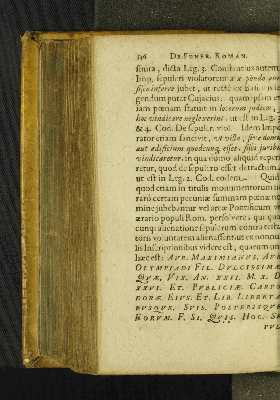 346 DE FVNER. ROMAN.
finita, dicta Leg. 3. Constantius autem
Imp. sepulcri violatorem x x. pondo auri
fisco inferre jubet, ut recte ex
gendum putat Cujacius: quam ipsam et
iam pœnam statuit in locorum judices,
hoc vindicare neglexerint, ut est in Leg. 3
& 4. Cod. De sepulcr. viol. Idem Impe
rator etiam sancivit, ut villa, sive domus
aut ædificium quodcunq; esset, fisci juribus
vindicaretur, in qua domo aliquid reperi
retur, quod de sepulcro esset detractum,
ut est in Leg. 2. Cod. eodem. Quid
quod etiam in titulis monumentorum
raro certam pecuniæ summam pœnæ no
mine jubebantur vel arcæ Pontificum vel
ærario populi Rom. persolvere, qui quan
cunq; alienatione sepulcrum contra testa
toris voluntatem alienassent, ut ex nonnul
lis Inscriptionibus videre est, quarum una
hæc est: AVR. MAXIMIANVS, AVR
OLYMPIADI FIL. DVLCISSIMÆ
QVÆ, VIX. AN. XXII. M. X. D.
XXVI. ET. PVBLICIÆ. CARPO
DORÆ. EIVS. ET. LIB. LIBERTA
BVSQVE. SVIS. POSTERISQVE
EORVM. F. SI. QVIS. HOC. SE
PVL